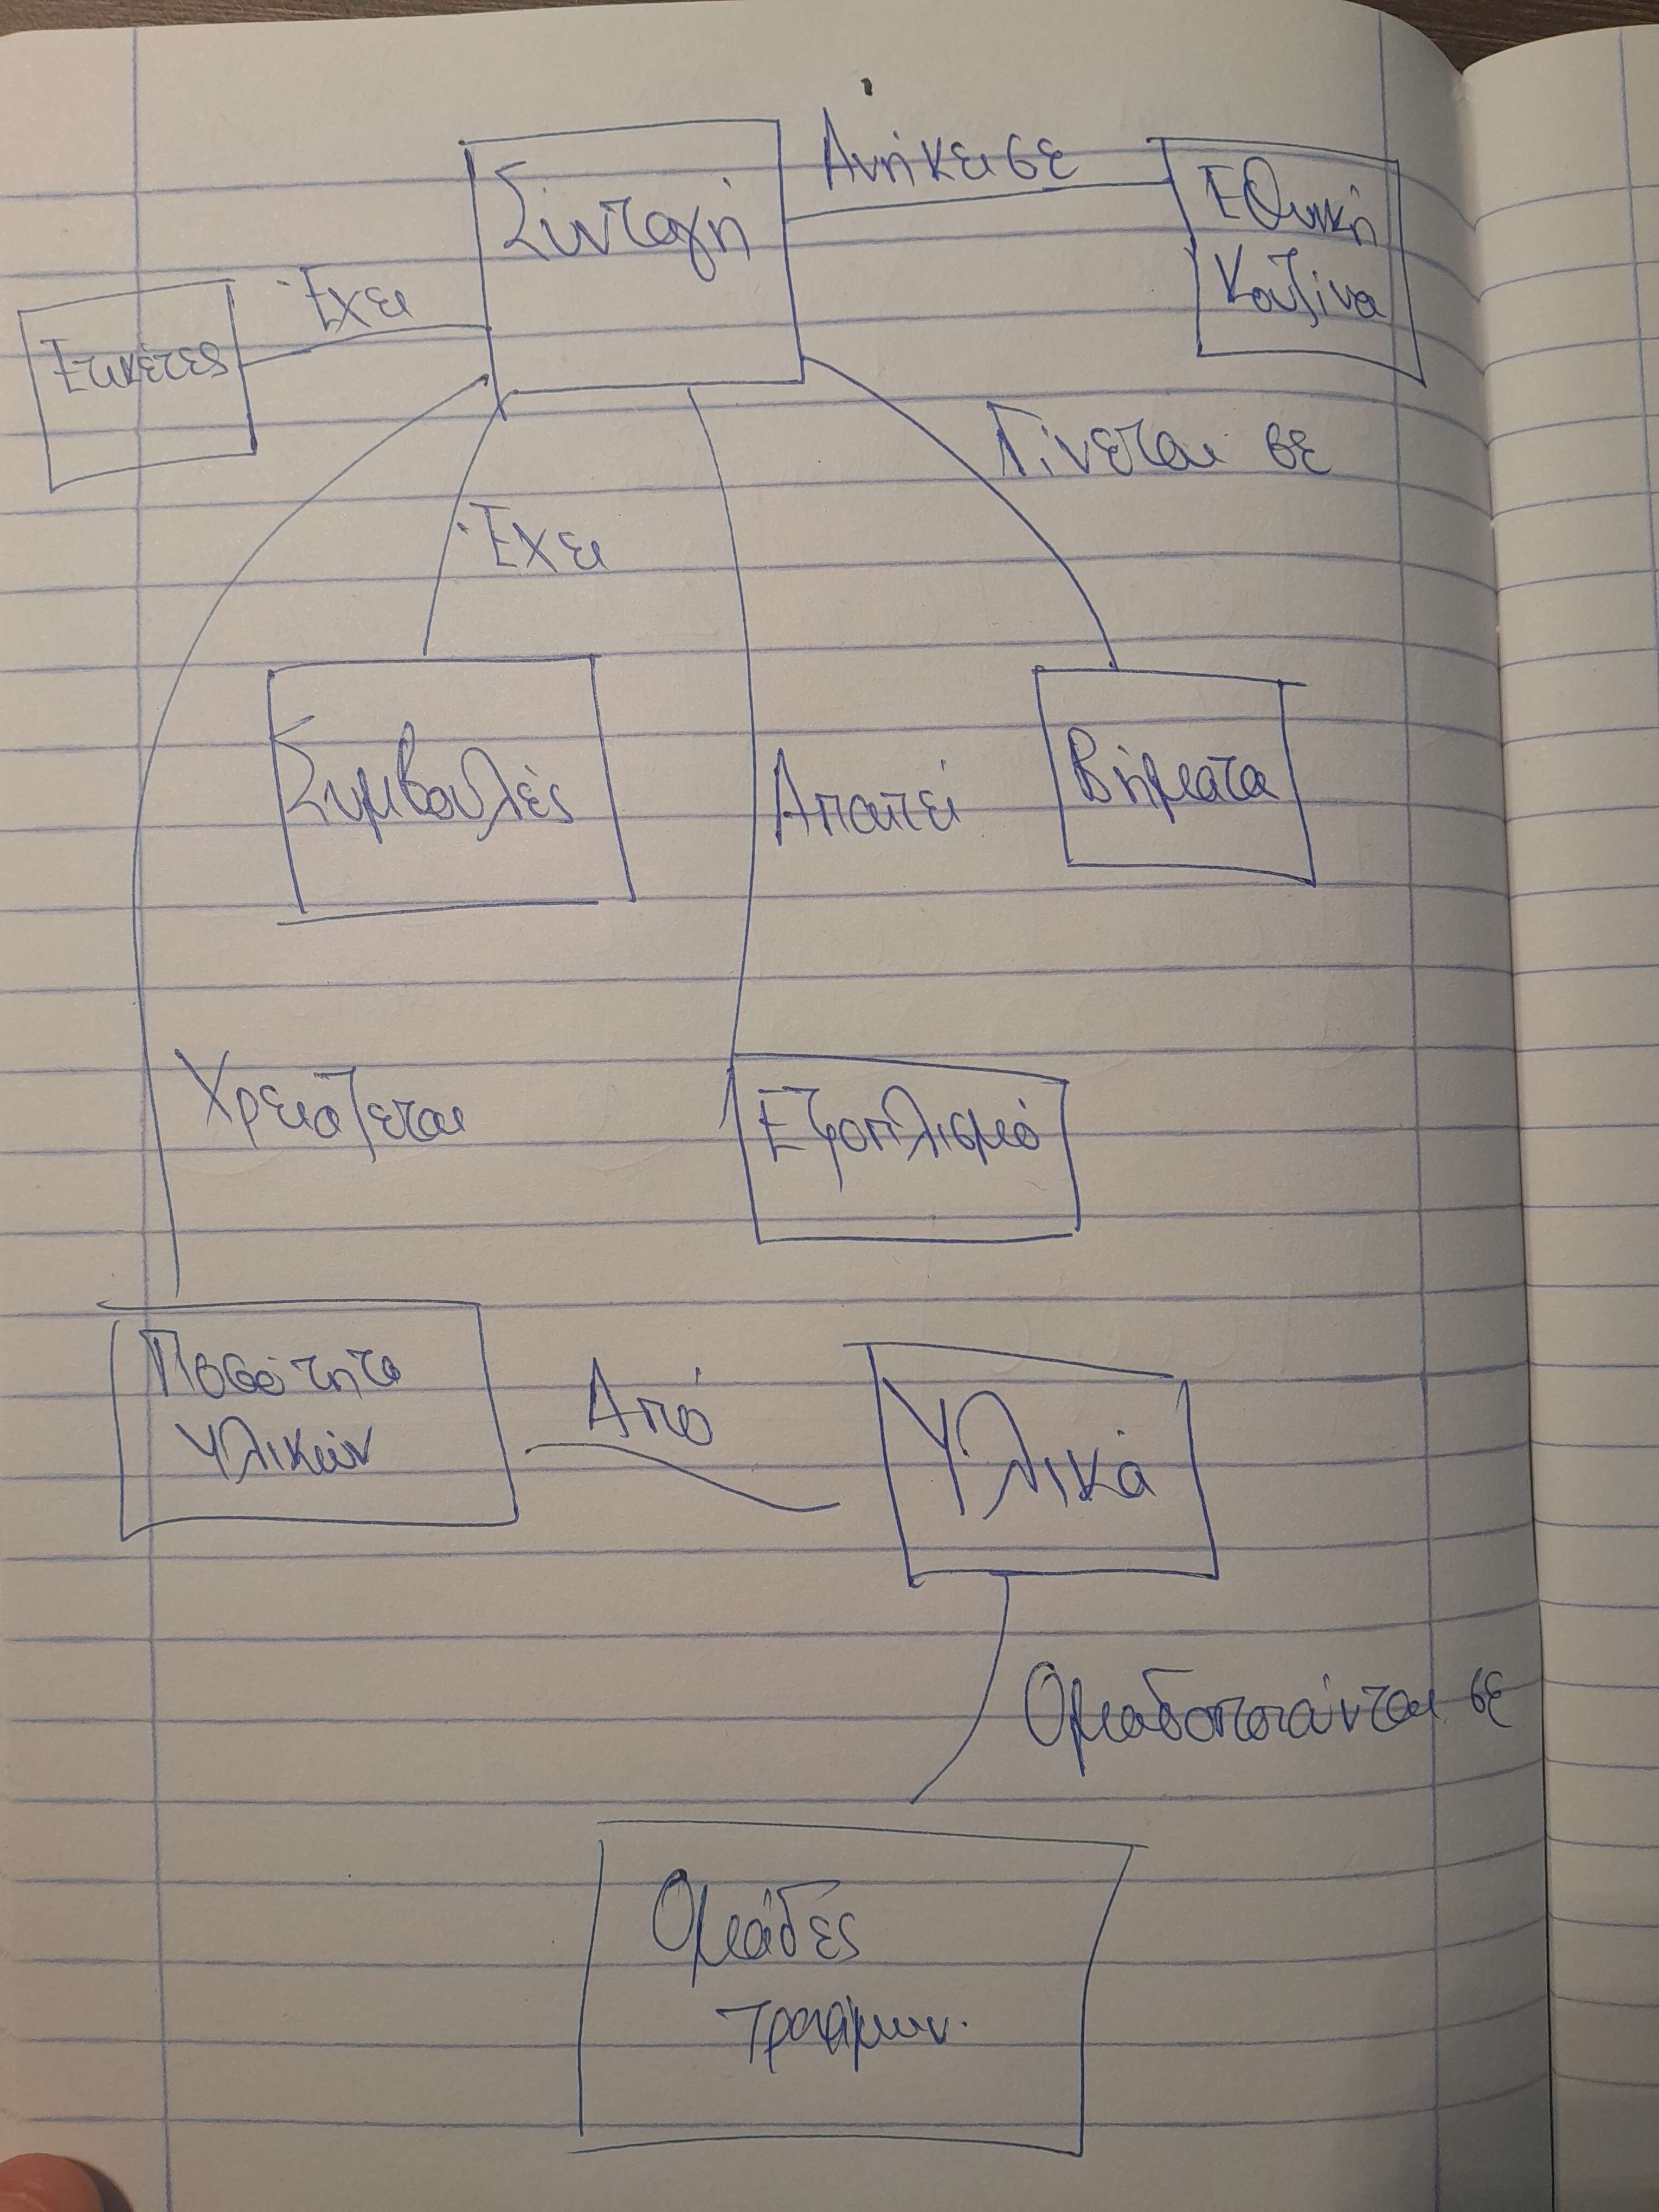 Συνταγή
Ανήκει σε
Εθνική
Κουζίνα
Έχει
Ετικέτες
Γίνεται σε
Έχει
Συμβουλές
Απαιτεί
Βήματα
Χρειάζεται
Εξοπλισμό
Ποσότητα
Υλικών
Από
Υλικά
Ομαδοποιούνται σε
Ομάδες
Τροφίμων.